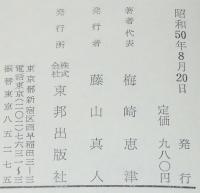 昭和50年8月20日 発行
定価 九八〇円
著者代表 梅崎恵津
発行者 藤山真人
発行所 株式会社 東邦出版社
東京都新宿区西早稲田三ー三
電話東京(二〇二)七六三一〜三
振替東京八五二七五